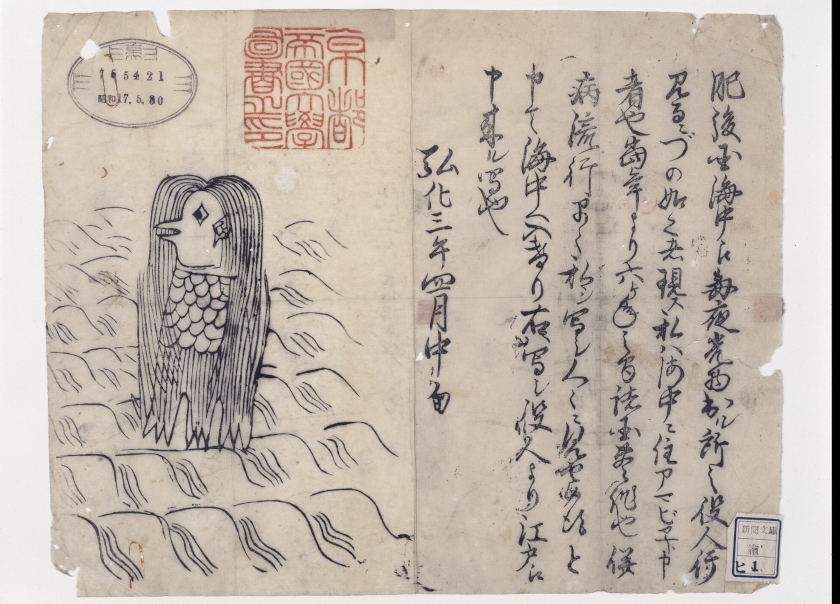 肥後国海中え毎夜光物出ル所之役人行
見るニづの如く者現ス私ハ海中ニ住アマビヱト申
者也当年より六ヶ年之間諸国豊作也併
病流行早々私ヲ写シ人々ニ見せ候得と
申て海中へ入けり右写シ役人より江戸え
申来ル写也
弘化三年四月中旬
京都
帝國大學
圖書之印
昭和17.5.30
新聞文庫
繪
ヒ 1